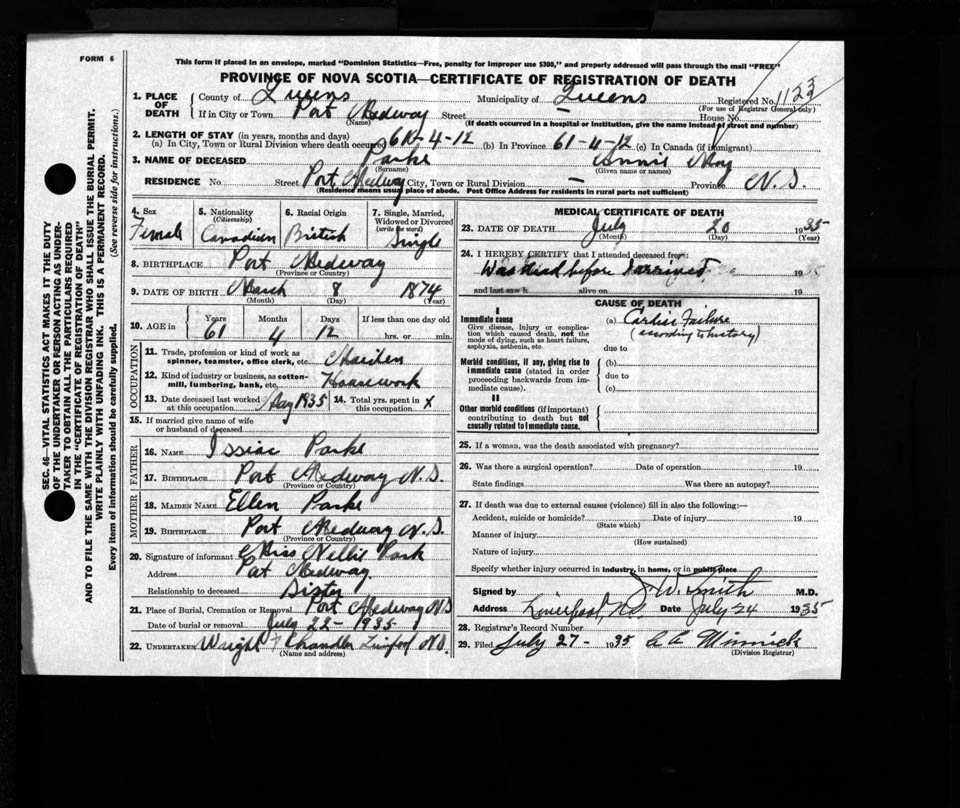 FORM 6
This form if placed in an envelope, marked "Dominion Statistics—Free, penalty for improper use $300," and properly addressed will pass through the mail "FREE"
PROVINCE OF NOVA SCOTIA—CERTIFICATE OF REGISTRATION OF DEATH
1. PLACE OF DEATH County of Queens Municipality of Queens Registered No. 1123
(For use of Registrar General only)
If in City or Town Port Medway Street — House No.
(Name) (If death occurred in a hospital or institution, give the name instead of street and number)
2. LENGTH OF STAY (in years, months and days)
(a) In City, Town or Rural Division where death occurred 61-4-12 (b) In Province 61-4-12 (c) In Canada (if immigrant)
3. NAME OF DECEASED Parke Annie May
(Surname) (Given name or names)
RESIDENCE No. Street Port Medway City, Town or Rural Division — Province N.S.
(Residence means usual place of abode. Post Office Address for residents in rural parts not sufficient)
4. Sex Female
5. Nationality (Citizenship) Canadian
6. Racial Origin British
7. Single, Married, Widowed or Divorced (write the word) Single
8. BIRTHPLACE Port Medway
(Province or Country)
9. DATE OF BIRTH March 8 1874
(Month) (Day) (Year)
10. AGE in Years 61 Months 4 Days 12 If less than one day old hrs. or min.
OCCUPATION
11. Trade, profession or kind of work as spinner, teamster, office clerk, etc. Maiden
12. Kind of industry or business, as cotton-mill, lumbering, bank, etc. Housework
13. Date deceased last worked at this occupation May 1935 14. Total yrs. spent in this occupation x
15. If married give name of wife or husband of deceased
FATHER
16. NAME Issiac Parke
17. BIRTHPLACE Port Medway N.S.
(Province or Country)
MOTHER
18. MAIDEN NAME Ellen Parke
19. BIRTHPLACE Port Medway N.S.
(Province or Country)
20. Signature of informant Miss Nellie Park
Address Port Medway
Relationship to deceased Sister
21. Place of Burial, Cremation or Removal Port Medway N.S
Date of burial or removal July 22-1935
22. UNDERTAKER Wright Chandler N.S.
(Name and address)
MEDICAL CERTIFICATE OF DEATH
23. DATE OF DEATH July 20 1935
(Month) (Day) (Year)
24. I HEREBY CERTIFY that I attended deceased from:
Was dead before I arrived. 1935
and last saw h alive on 19
CAUSE OF DEATH
I
Immediate cause
Give disease, injury or complication which caused death, not the mode of dying, such as heart failure, asphyxia, asthenia, etc.
(a) Cardiac Failure
(according to history)
due to
Morbid conditions, if any, giving rise to immediate cause (stated in order proceeding backwards from immediate cause).
(b)
due to
(c)
II
Other morbid conditions (if important) contributing to death but not causally related to immediate cause.
25. If a woman, was the death associated with pregnancy?
26. Was there a surgical operation? Date of operation 19
State findings Was there an autopsy?
27. If death was due to external causes (violence) fill in also the following:—
Accident, suicide or homicide? Date of injury 19
(State which)
Manner of injury
(How sustained)
Nature of injury
Specify whether injury occurred in industry, in home, or in public place
Signed by J. W. Smith M.D.
Address Liverpool, N.S. Date July 24 1935
28. Registrar's Record Number
29. Filed July 27- 1935 Minnick
(Division Registrar)
SEC. 46—VITAL STATISTICS ACT MAKES IT THE DUTY
OF THE UNDERTAKER OR PERSON ACTING AS UNDER-
TAKER TO OBTAIN ALL THE PARTICULARS REQUIRED
IN THE "CERTIFICATE OF REGISTRATION OF DEATH"
AND TO FILE THE SAME WITH THE DIVISION REGISTRAR WHO SHALL ISSUE THE BURIAL PERMIT.
WRITE PLAINLY WITH UNFADING INK. THIS IS A PERMANENT RECORD.
Every item of information should be carefully supplied. (See reverse side for instructions.)